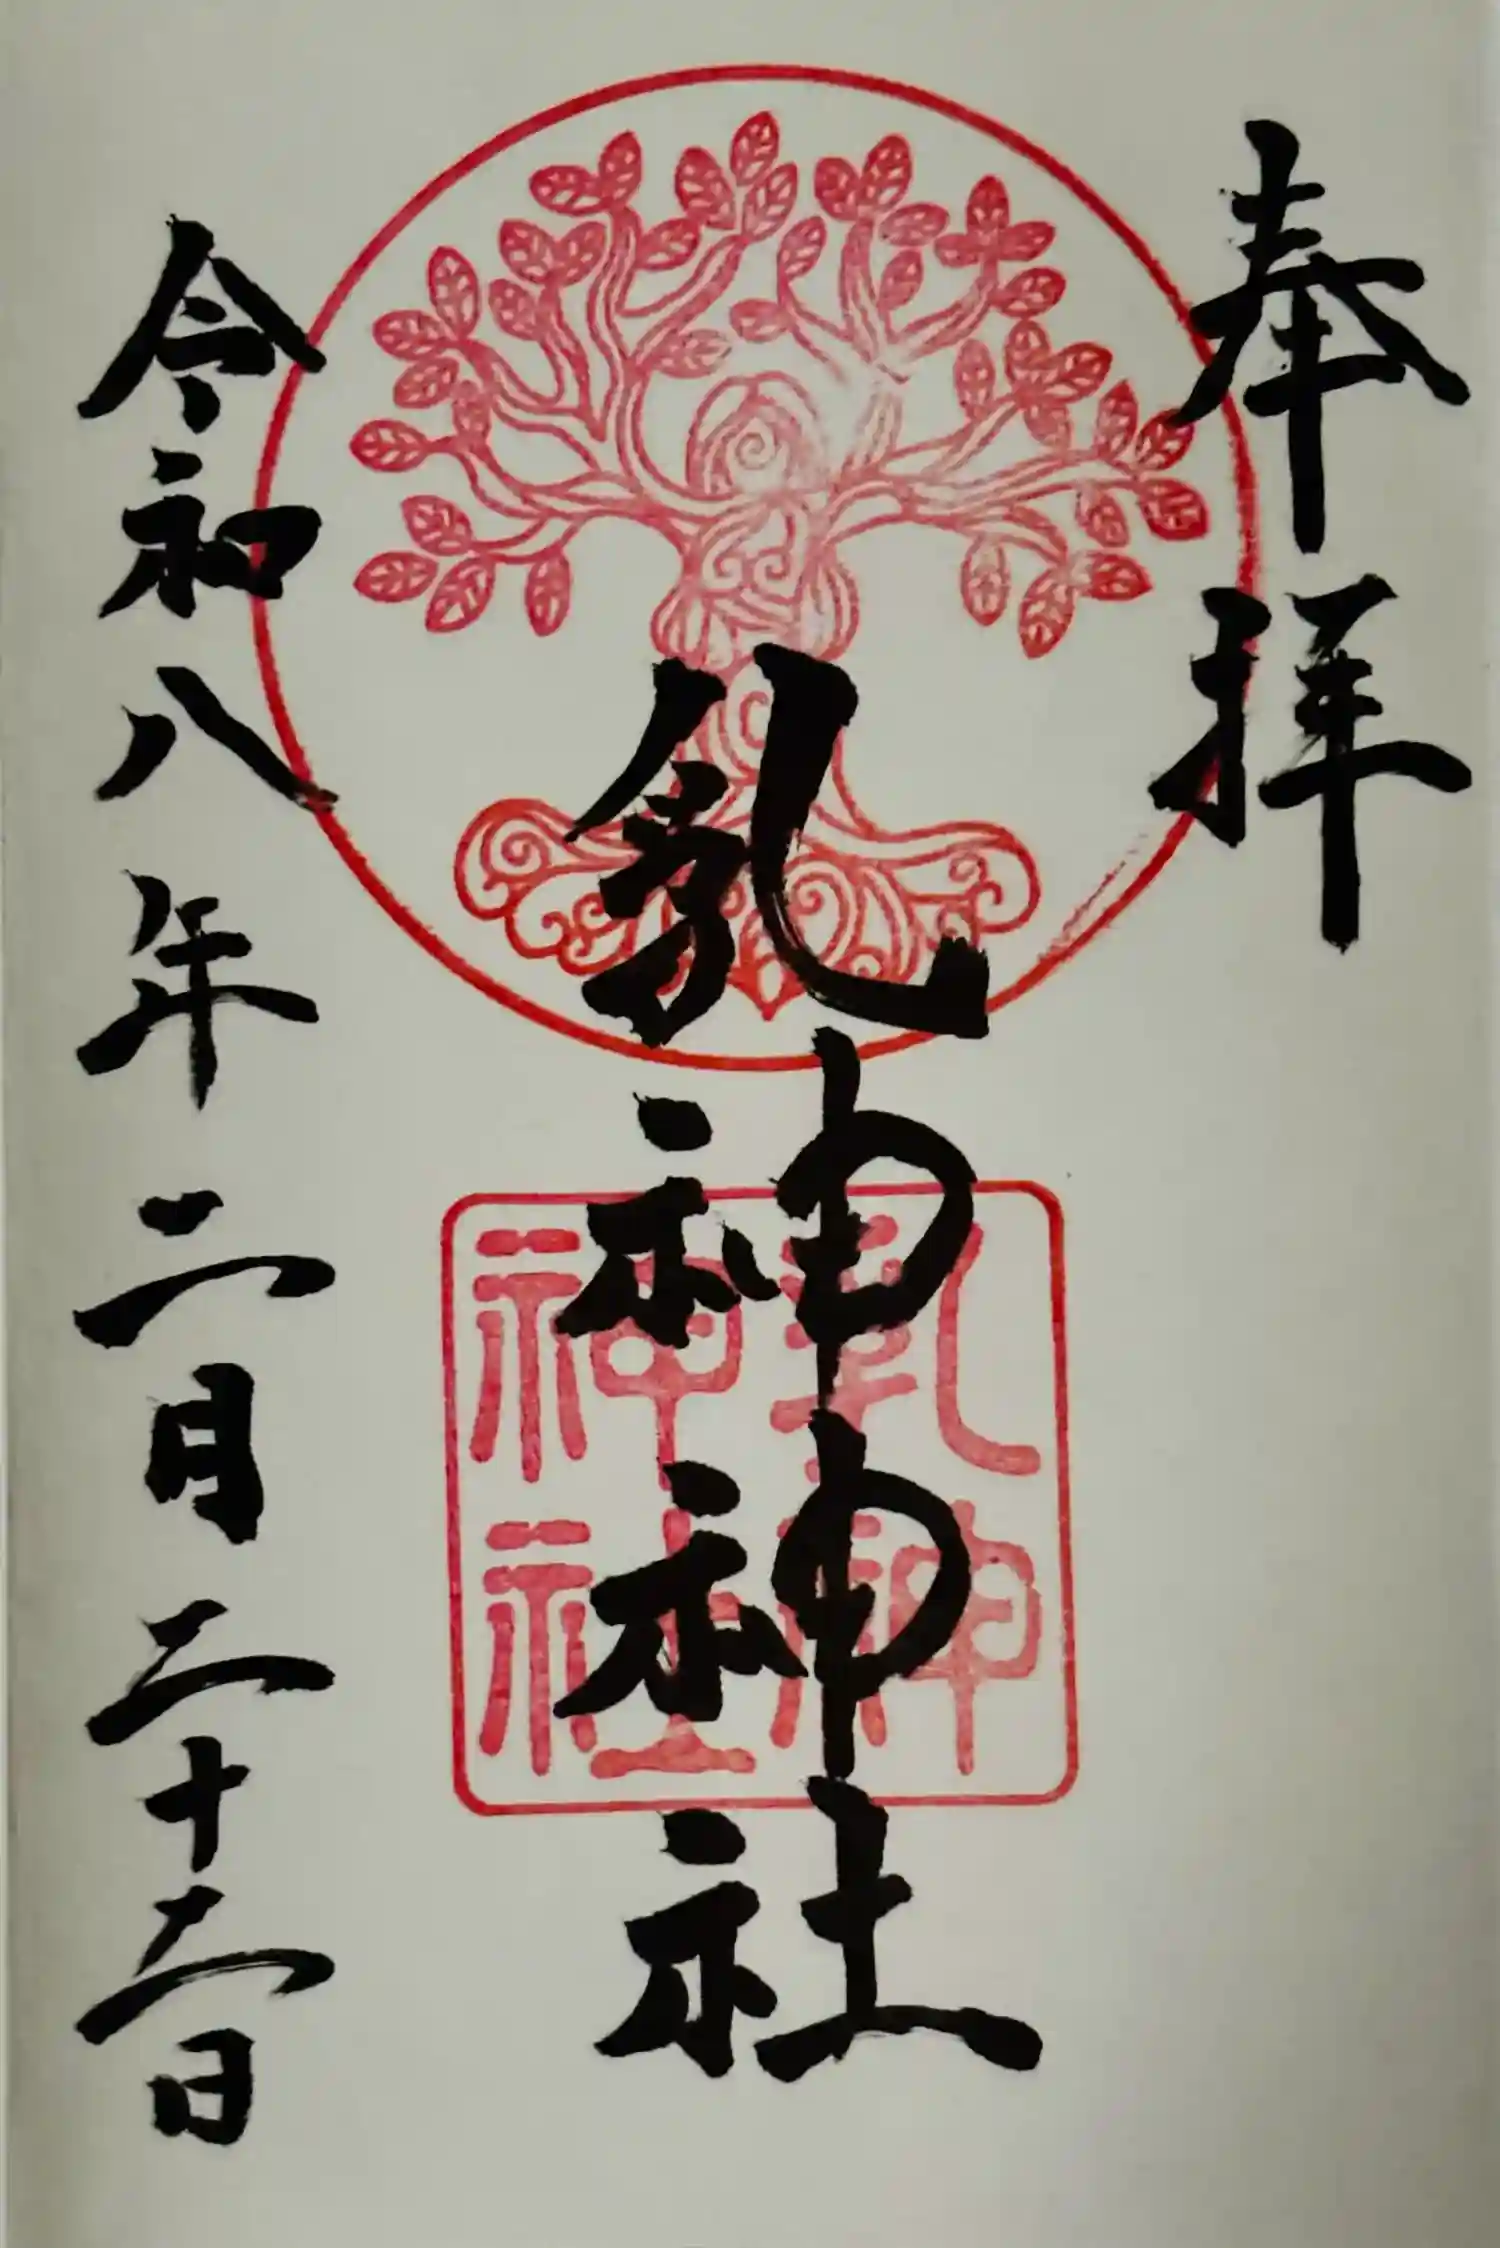 奉拝
乳神神社
乳神
神社
令和八年二月二十二日